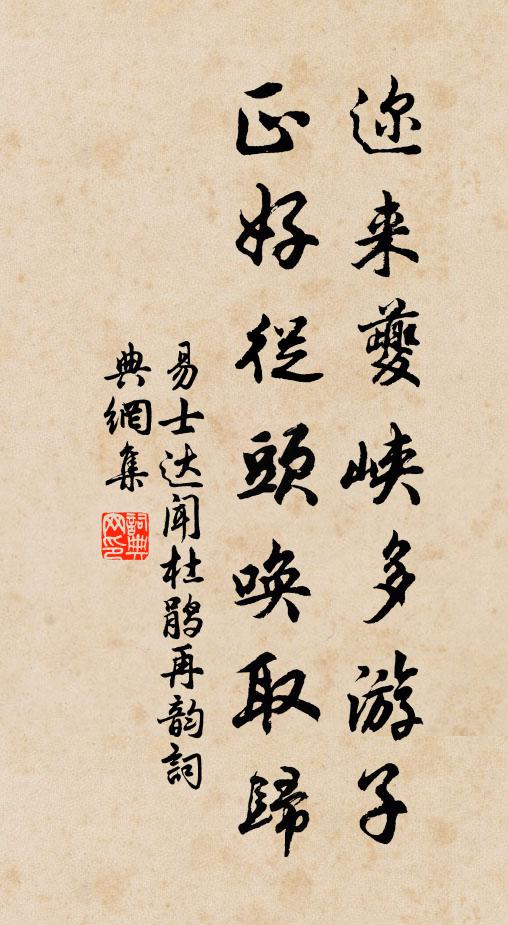 迩来夔峡多游子
正好從頭喚取歸
易士达闻杜鹃再韵詞
典網集
詞典網印